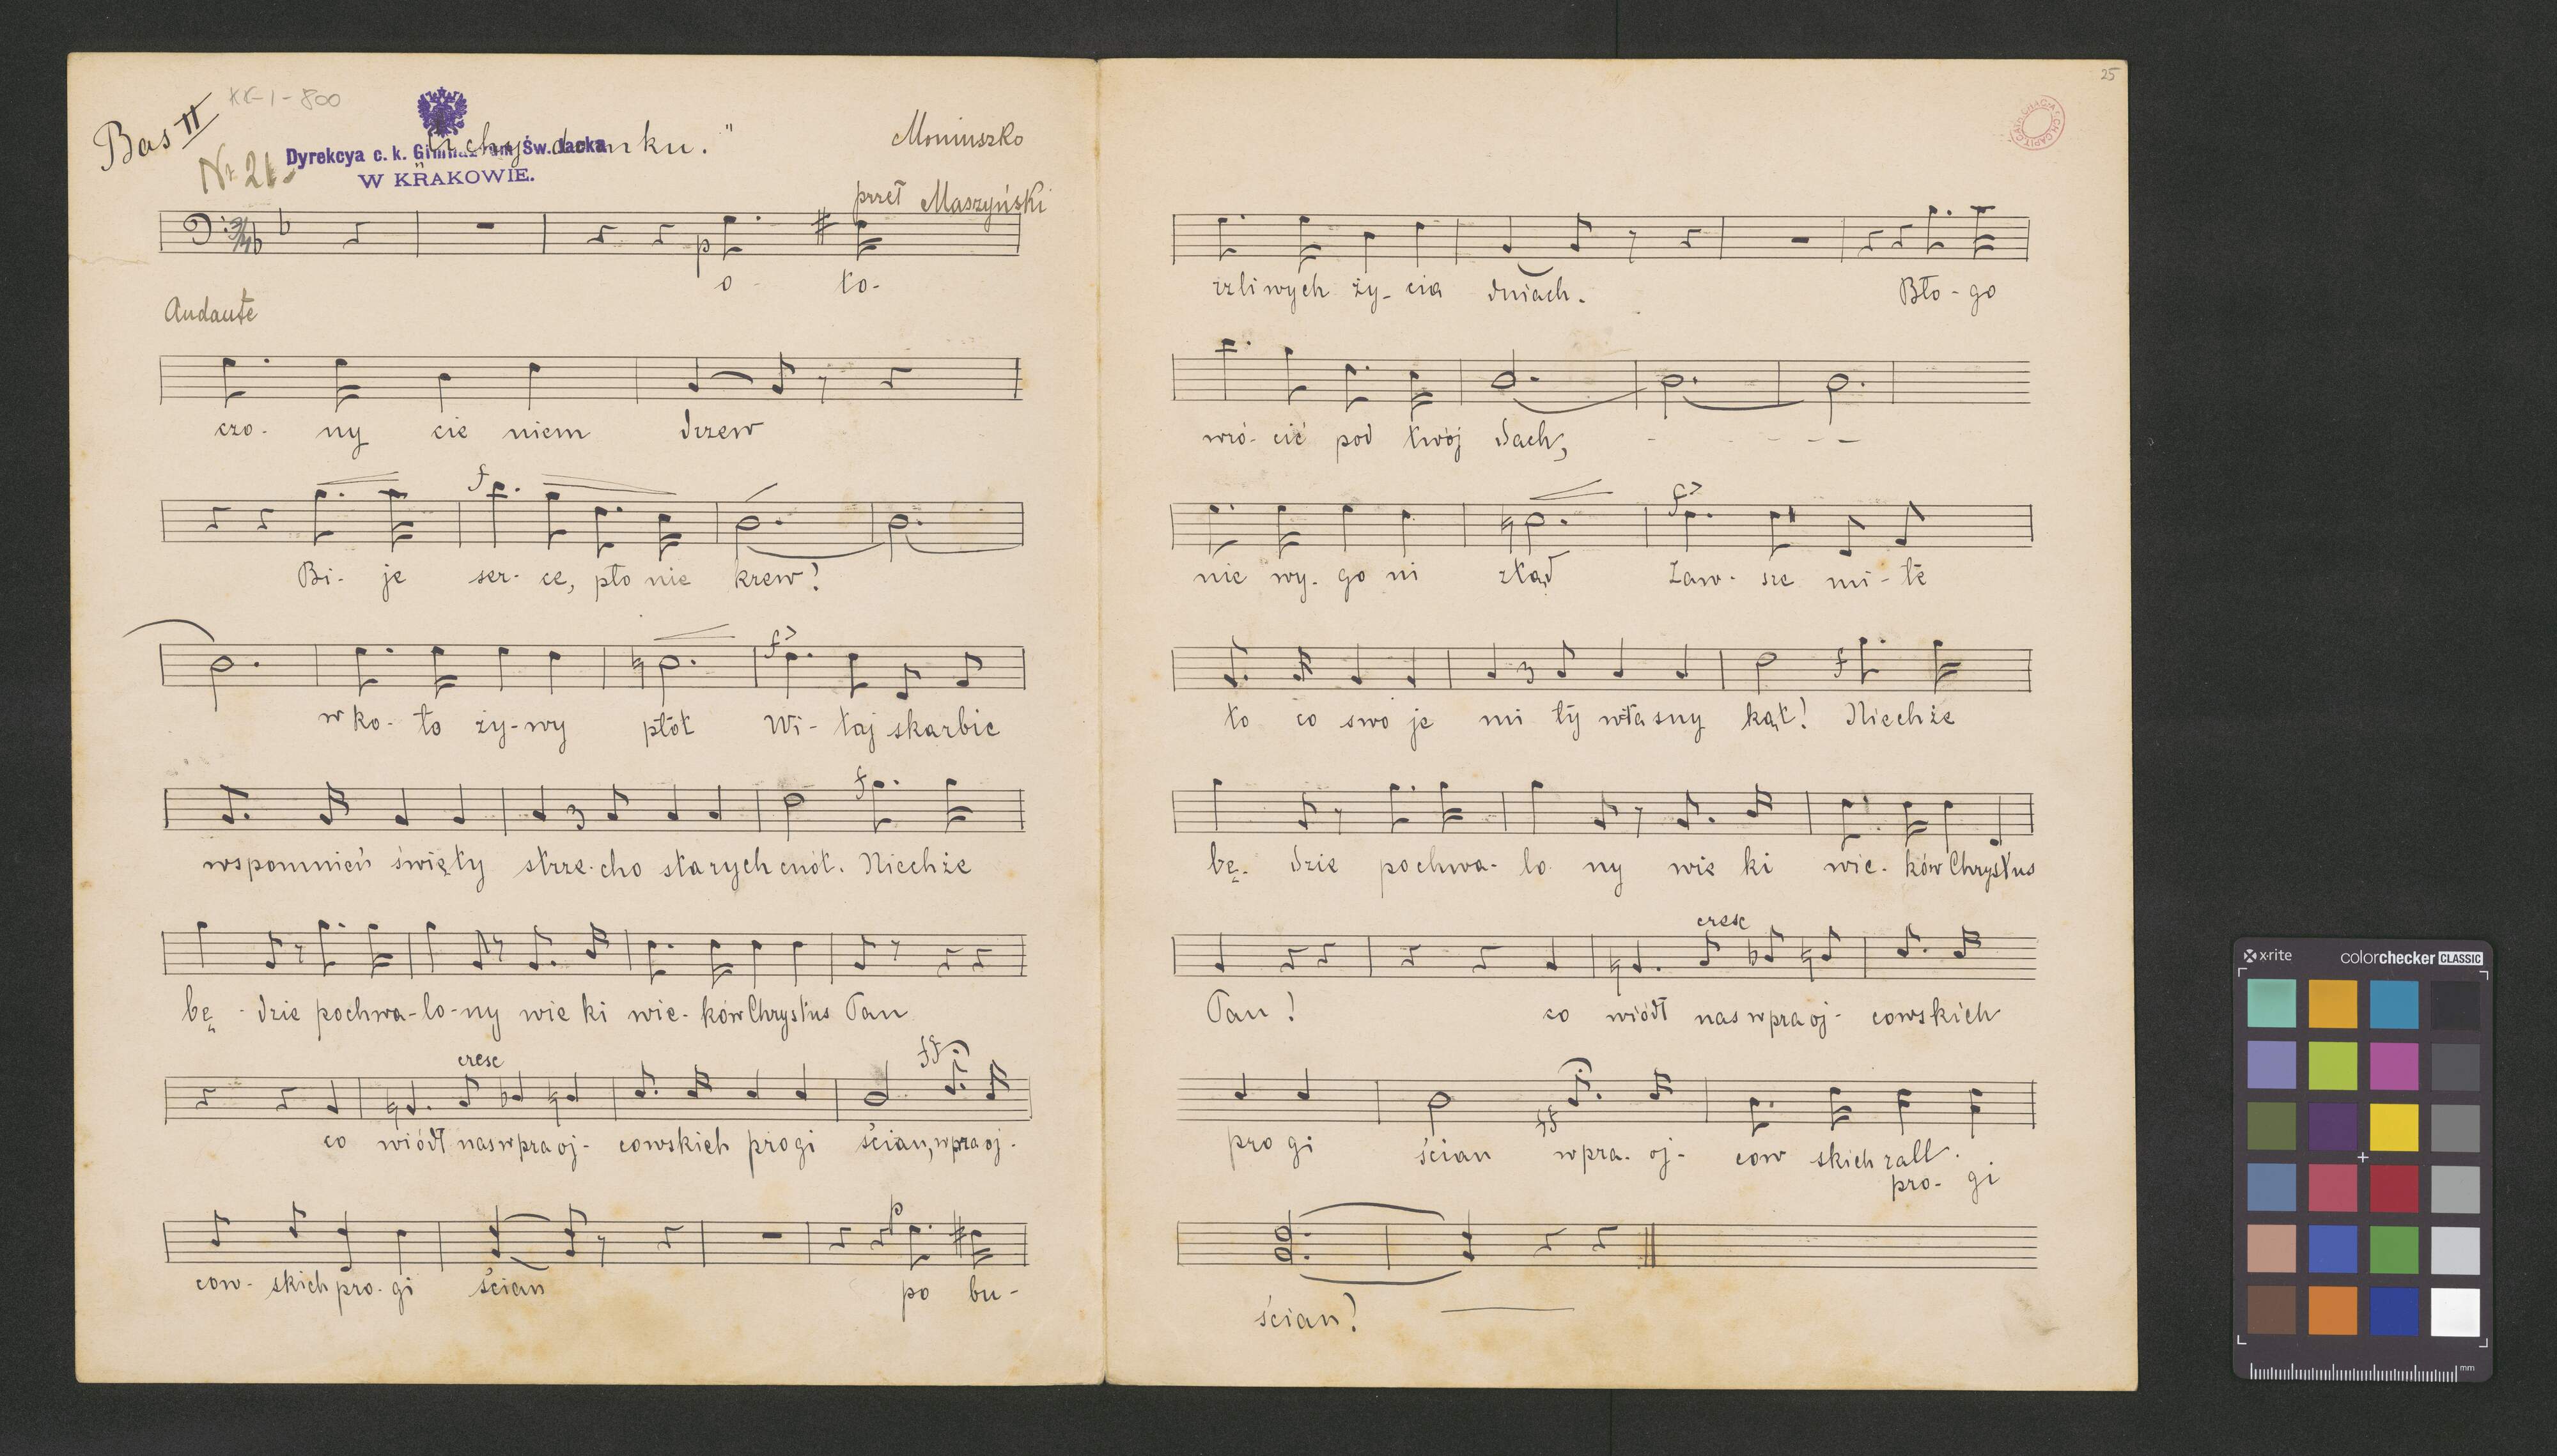 Bas II
KK-1-800
Nr 21
Dyrekcya c. k. Gimnazyum Św. Jacka
W KRAKOWIE.
"Cichy domku."
Moniuszko
przeł Maszyński
p
o- to-
Andante
czo- ny cie niem drzew
f
Bi- je ser- ce, pło nie krew!
f>
w ko- ło ży-wy płot Wi- taj skarbie
f
wspomnień święty strze-cho starych cnót. Niechże
bę- dzie pochwa-lo-ny wie ki wie- ków Chrystus Pan
cresc ff
co wiódł nas w pra oj- cowskich progi ścian, w pra oj-
p
cow- skich pro- gi ścian po bu-
25
rzliwych ży- cia dniach. Bło- go
wró- cić pod twój dach,
f>
nie wy- go ni ztąd Zaw- sze mi- łe
f
to co swo je mi ły własny kąt! Niechże
bę- dzie pochwa- lo ny wie ki wie- ków Chrystus
cresc
Pan! co wiódł nas w pra oj- cowskich
ff
pro gi ścian w pra- oj- cow skich rall.
pro- gi
ścian!
x-rite colorchecker CLASSIC
mm